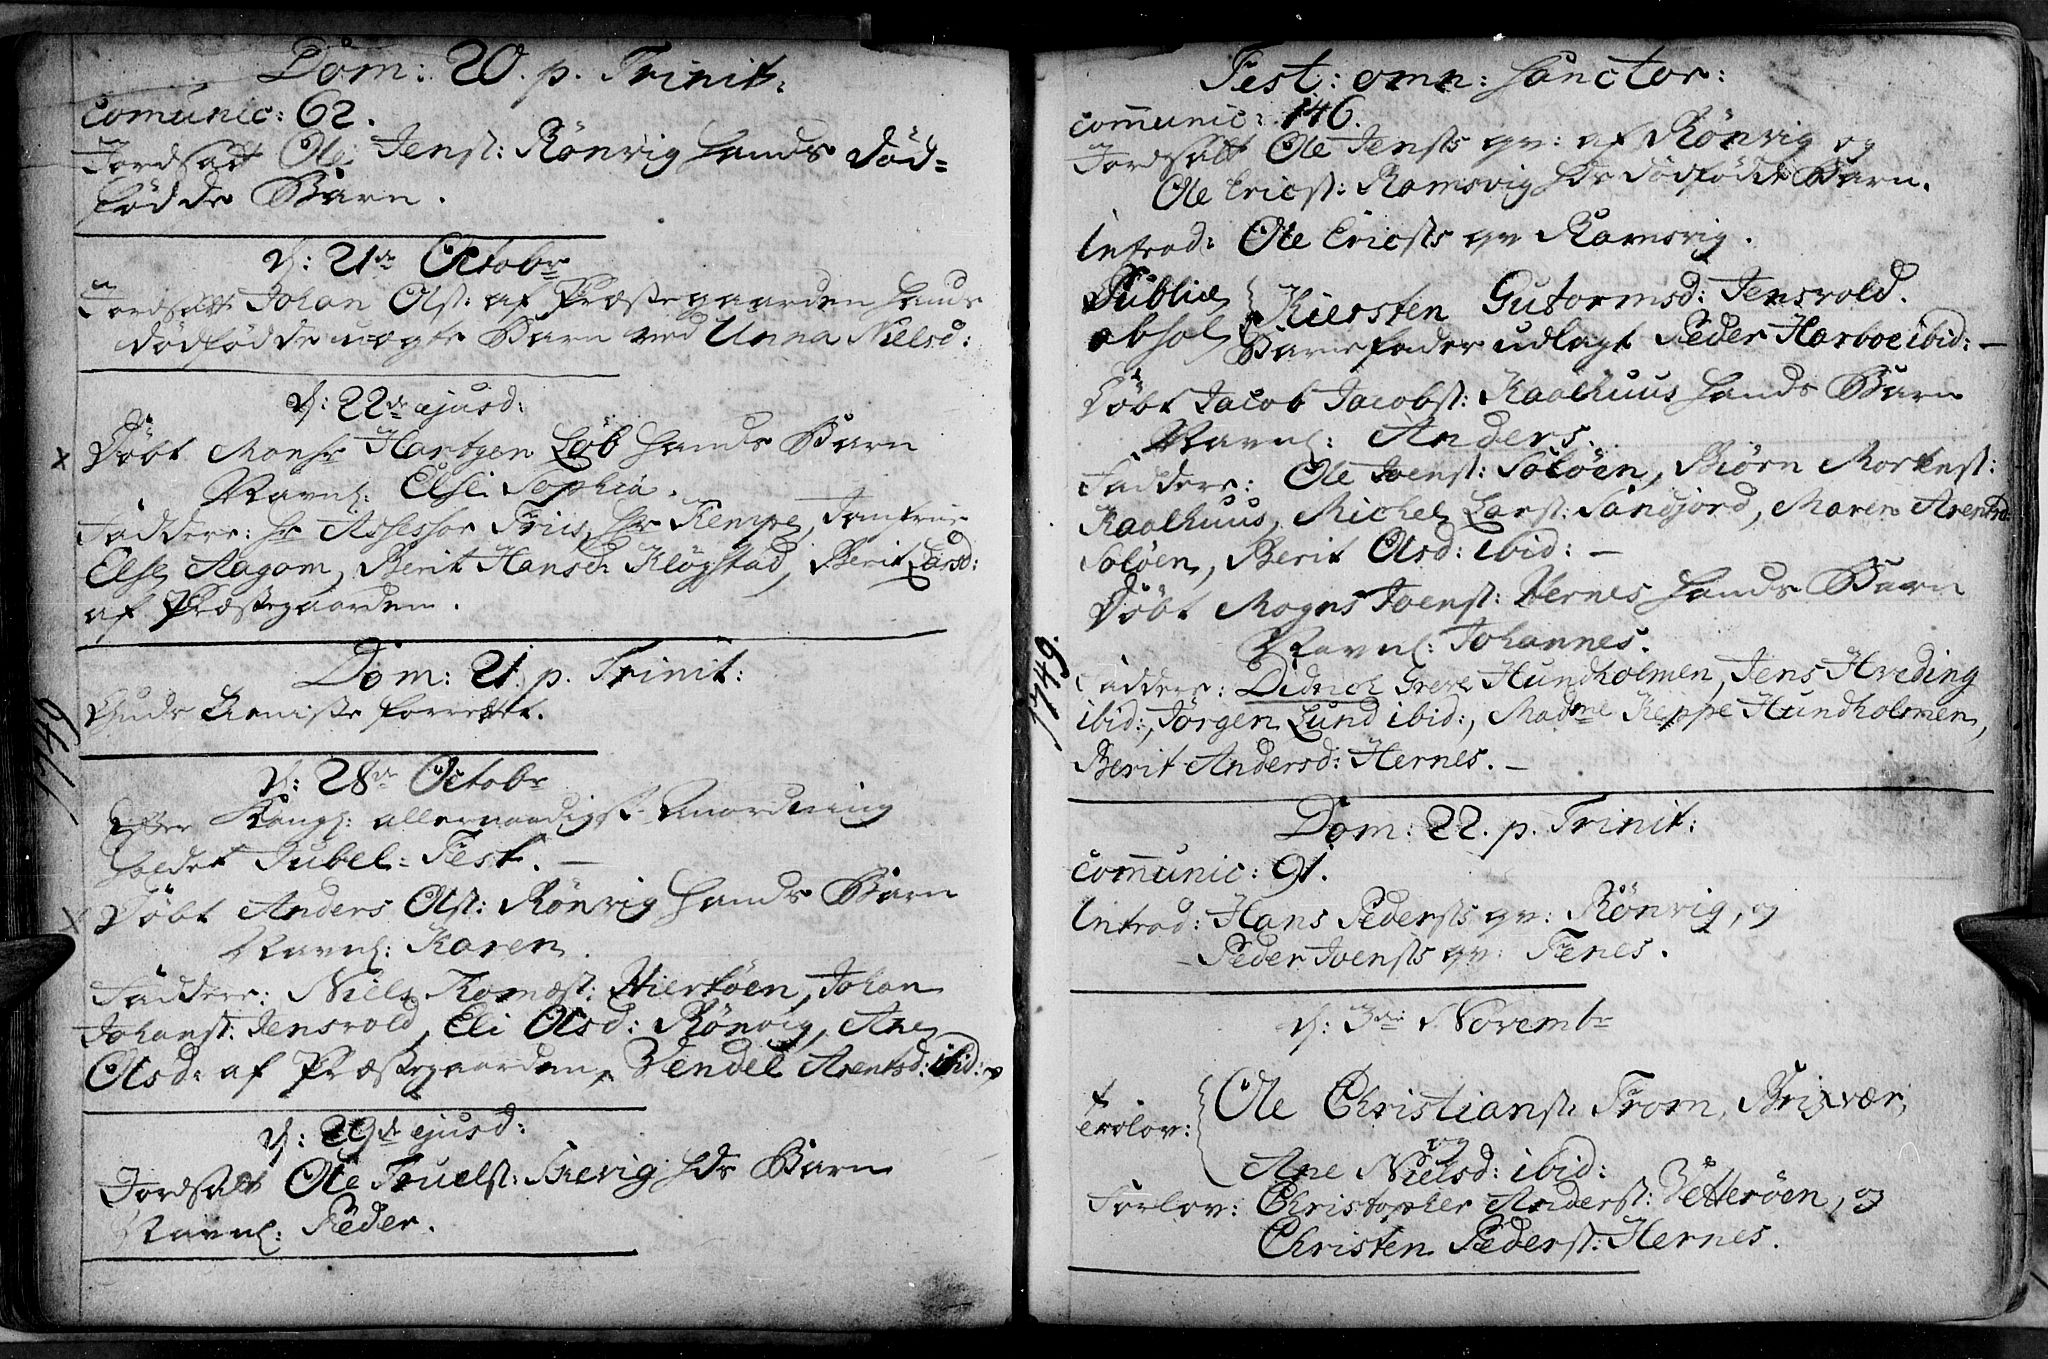 Dom: 20. p. Trinit:
comunic: 62.
Jordsatt Ole Jenss: Rönvig hands död=
födde Barn.
d: 21de Octobr
Jordsatt Johan Olss: af Præstegaarden hands
dödfödde uægte Barn ved Unna Nielsd:
d: 22de ejusd:
x Döbt Monsr Hartvgen Löb hands Barn
Navnl: Else Sophia.
Faddere: hr Assessor Friis, hr Kempe, Jomfrue
Else Aagom, Berit Hansd: Klögstad, Berit Larsd:
af Præstegaarden.
Dom: 21. p. Trinit:
Guds Tieniste forrettet.
1749
d: 28de Octobr
Efter Kongl: allernaadigst Anordning
holdet Jubel=Fest. —
x Döbt Anders Olss: Rönvig hands Barn
Navnl: Karen.
Faddere: Niels Tomæss: Hiertöen, Johan
Johanss: Jensvold, Eli Olsd: Rönvig, Ane
Olsd: af Præstegaarden, Vendel Arentsd: ibid:
d: 29de ejusd:
Jordsatt Ole Truelss: Trevig hds Barn
Navnl: Peder.
Fest: omn: Sanctor:
communic: 146.
Jordsatt Ole Jenss qv: af Rönvig og
Ole Ericss: Ramsvig hds dödfödde Barn.
Introd: Ole Ericss qv Ramsvig.
Publice absol { Kiersten Gutormsd: Jensvold.
Barnefader udlagt Peder Harboe ibid: —
Döbt Jacob Jacobss: Kaalhuus hands Barn
Navnl: Anders.
Faddere: Ole Joenss: Solöen, Biørn Mortenss:
Kaalhuus, Michel Larss: Sandjord, Maren Arentsd:
Solöen, Berit Olsd: ibid: —
Döbt Mogns Joenss: Hernes hands Barn
Navnl: Johannes.
1749.
Faddere: Didrich Greve Hundholmen, Jens Hveding
ibid:, Jörgen Lund ibid:, Madme Keppe Hundholmen,
Berit Andersd: Hernes. —
Dom: 22. p. Trinit:
communic: 91.
Introd: Hans Pederss qv: Rönvig, og
Peder Joenss qv: Fenes.
d: 3die Novembr
Trolov: { Ole Christianss: From, Brixvær,
og
Ane Nielsd: ibid:
Forlov: Christopher Anderss: Vetteröen, og
Christen Pederss: Hernes.